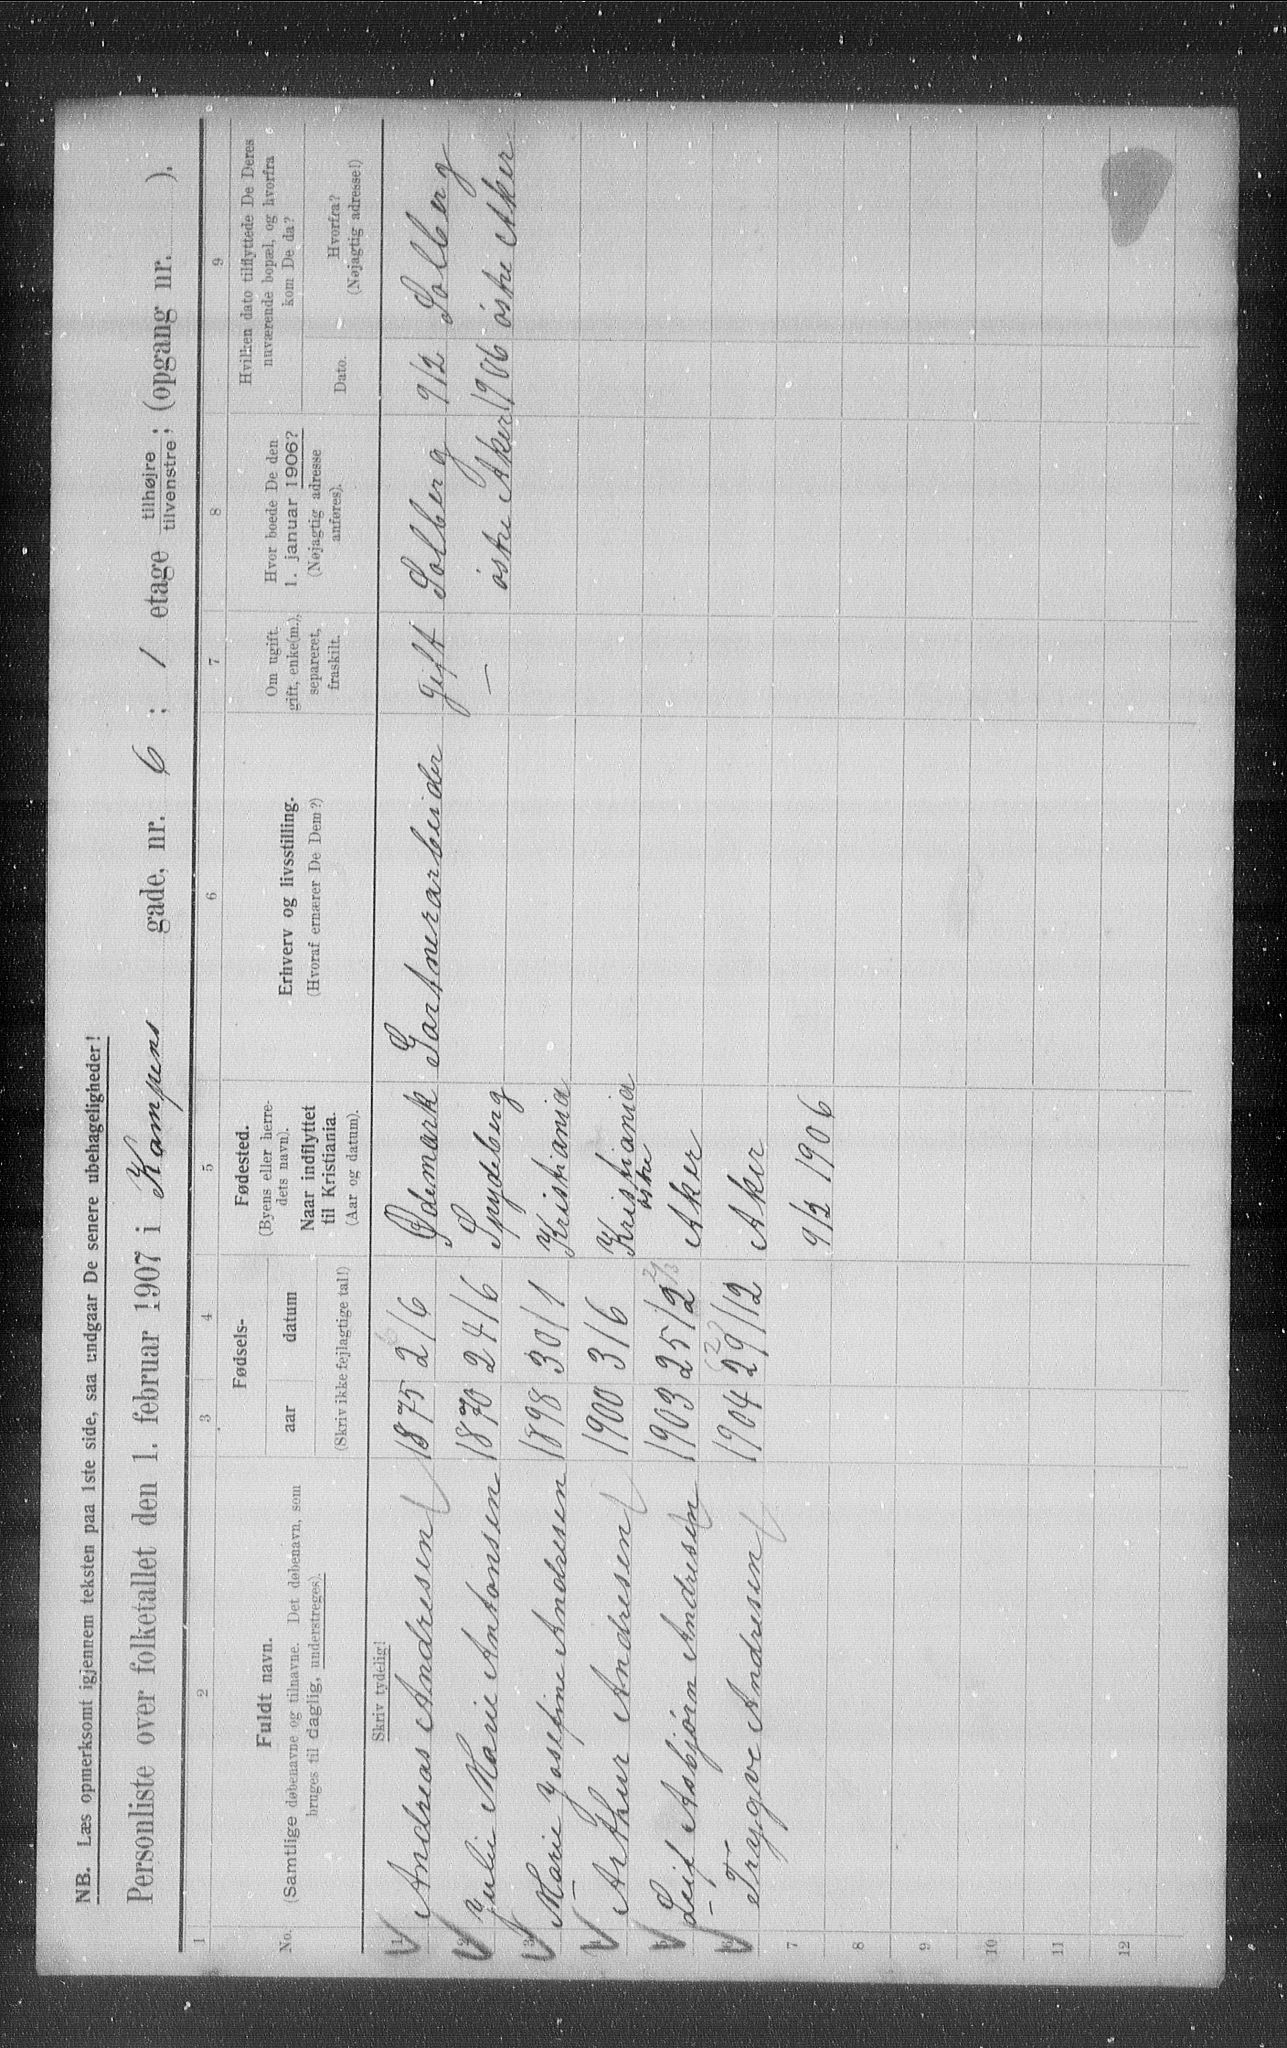 NB. Læs opmerksomt igjennem teksten paa 1ste side, saa undgaar De senere ubehageligheder!
Personliste over folketallet den 1. februar 1907 i Kampens gade, nr. 6 ; 1 etage tilhøjre / tilvenstre ; (opgang nr. ).
1 2 3 4 5 6 7 8 9
No.
Fuldt navn.
(Samtlige døbenavne og tilnavne. Det døbenavn, som
bruges til daglig, understreges).
Fødsels-
aar datum
(Skriv ikke fejlagtige tal!)
Fødested.
(Byens eller herre-
dets navn).
Naar indflyttet
til Kristiania.
(Aar og datum).
Erhverv og livsstilling.
(Hvoraf ernærer De Dem?)
Om ugift,
gift, enke(m.),
separeret,
fraskilt.
Hvor boede De den
1. januar 1906?
(Nøjagtig adresse
anføres).
Hvilken dato tilflyttede De Deres
nuværende bopæl, og hvorfra
kom De da?
Dato.
Hvorfra?
(Nøjagtig adresse!)
Skriv tydelig!
1 Andreas Andresen 1875 2/6 Ødemark Gartnerarbeider gift Solberg 9/2 Solberg
2 Julie Marie Antonsen 1870 24/6 Spydeberg — östre Aker 1906 östre Aker
3 Marie Josefine Andresen 1898 30/1 Kristiania
4 Arthur Andresen 1900 3/6 Kristiania
östre
5 Leif Asbjørn Andresen 1903 25/2 Aker
6 Trygve Andresen 1904 29/12 Aker
7 9/2 1906
8
9
10
11
12